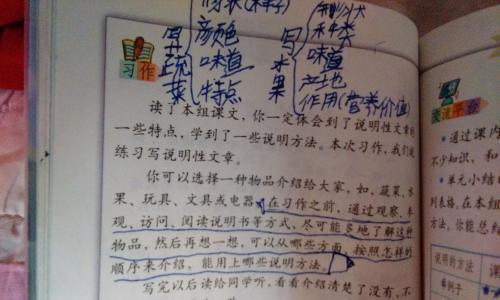 写蔬菜
颜色
味道
特点
写水果
种类
味道
产地
作用(营养价值)
习作
读了本组课文，你一定体会到了说明性文章的
一些特点，学到了一些说明方法。本次习作，我们
练习写说明性文章。
你可以选择一种物品介绍给大家，如，蔬菜、水
果、玩具、文具或电器。在习作之前，通过观察、参
观、访问、阅读说明书等方式，尽可能多地了解这种
物品，然后再想一想，可以从哪些方面、按照怎样的
顺序来介绍，能用上哪些说明方法。
写完以后读给同学听，看看介绍清楚了没有、不
交流平台
·通过课内
不少知识，和
·单元小结
列表格，在本组
方法，你能总结
说明的方法
举例子